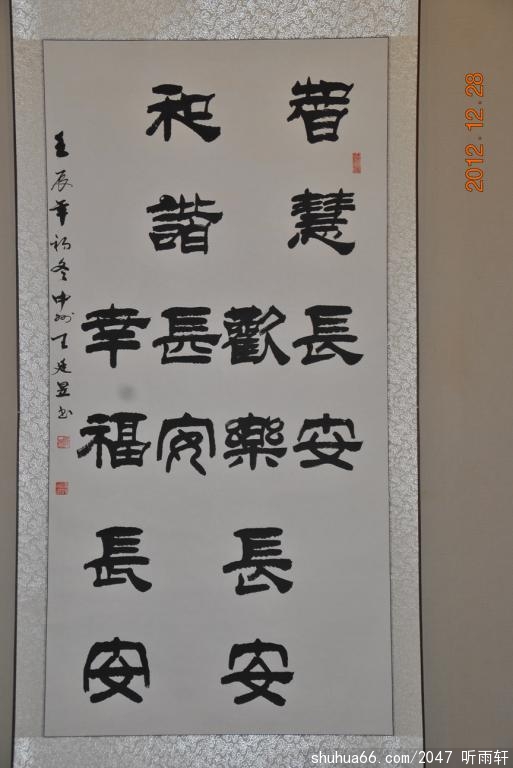 智慧長安
歡樂長安
和諧長安
幸福長安
壬辰年初冬中州王廷显书
2012.12.28
shuhua66.com/2047 听雨轩